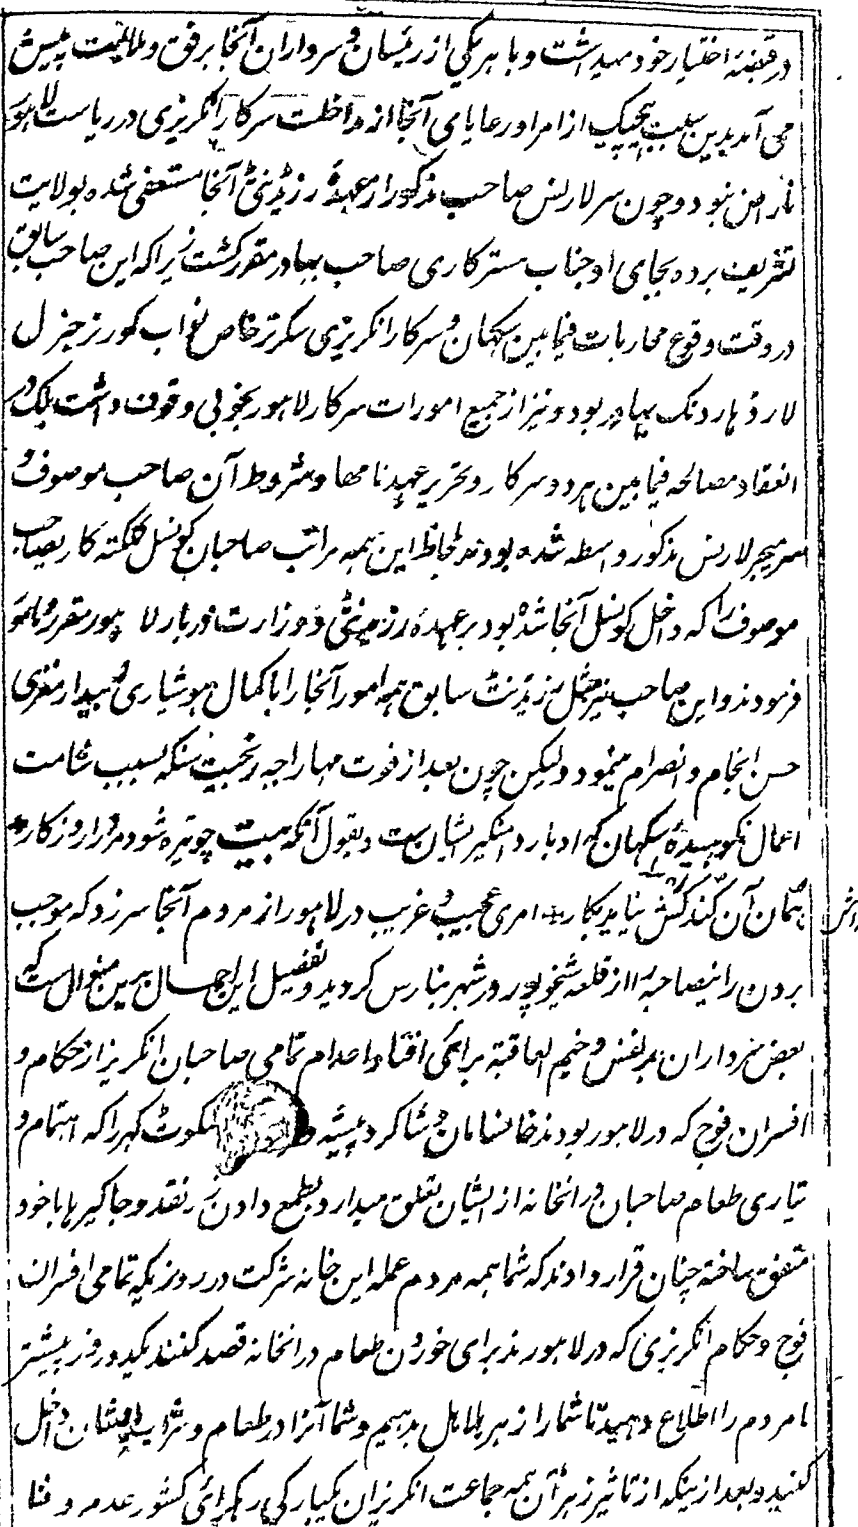 در قبضهٔ اختیار خود میداشت و با هر یکی از رئیسان و سرداران آنجا برفق و ملایمت پیش
می آمد بدین سبب هیچیک از امرا و رعایای آنجا از مداخلت سرکار انگریزی در ریاست لاهور
ناراض نبود و چون سر لارنس صاحب مذکور از عهدهٔ رزیڈنٹی آنجا مستعفی شده بولایت
تشریف برده بجای او جناب مستر کاری صاحب بهادر مقرر گشت زیرا که این صاحب سابق
در وقت وقوع محاربات فیمابین سکهان و سرکار انگریزی سکرتر خاص نواب گورنر جنرل
لارڈ هاردنگ بهادر بود و نیز از جمیع امورات سرکار لاهور بخوبی وقوف داشت بلکه در
انعقاد مصالحه فیمابین هر دو سرکار و تحریر عهدنامها و شروط آن صاحب موصوف و
میجر لارنس مذکور واسطه شده بودند لحاظ این همه مراتب صاحبان کونسل کلکته کاری صاحب
موصوف را که داخل کونسل آنجا شده بود بر عهدهٔ رزیڈنٹی و وزارت دربار لاهور مقرر و مامور
فرمودند و این صاحب نیز مثل رزیڈنٹ سابق همه امور آنجا را با کمال هوشیاری و بیدار مغزی
حسن انجام و انصرام مینمود ولیکن چون بعد از فوت مهاراجه رنجیت سنگه بسبب شامت
اعمال نکوهیدهٔ سکهان که ادبار دامنگیر ایشان ست و بقول آنکه بیت چو تیره شود مرد را روزگار *
همان آن کند کش نیاید بکار * امری عجیب و غریب در لاهور از مردم آنجا سرزد که موجب
بردن رانیصاحبه از قلعه شیخوپور در شهر بنارس گردید و تفصیل این اجمال برین منوال ست که
بعض سرداران بدنفس وخیم العاقبة برای افنا و اعدام تمامی صاحبان انگریز از حکام و
افسران فوج که در لاهور بودند خانسامان و شاگرد پیشه سکوٹ گهر را که اهتمام و
تیاری طعام صاحبان در آنخانه از ایشان تعلق میدارد بطمع دادن زر نقد و جاگیر ها با خود
متفق ساخته چنان قرار دادند که شما همه مردم عمله این خانه شرکت در روزیکه تمامی افسران
فوج و حکام انگریزی که در لاهورند برای خوردن طعام در آنخانه قصد کنند یکدو روز پیشتر
ما مردم را اطلاع دهید تا شما را زهر هلاهل بدهیم و شما آنرا در طعام و شراب ایشان داخل
کنید و بعد ازینکه از تاثیر زهر آن همه جماعت انگریزان یکبارگی رهگرای کشور عدم و فنا